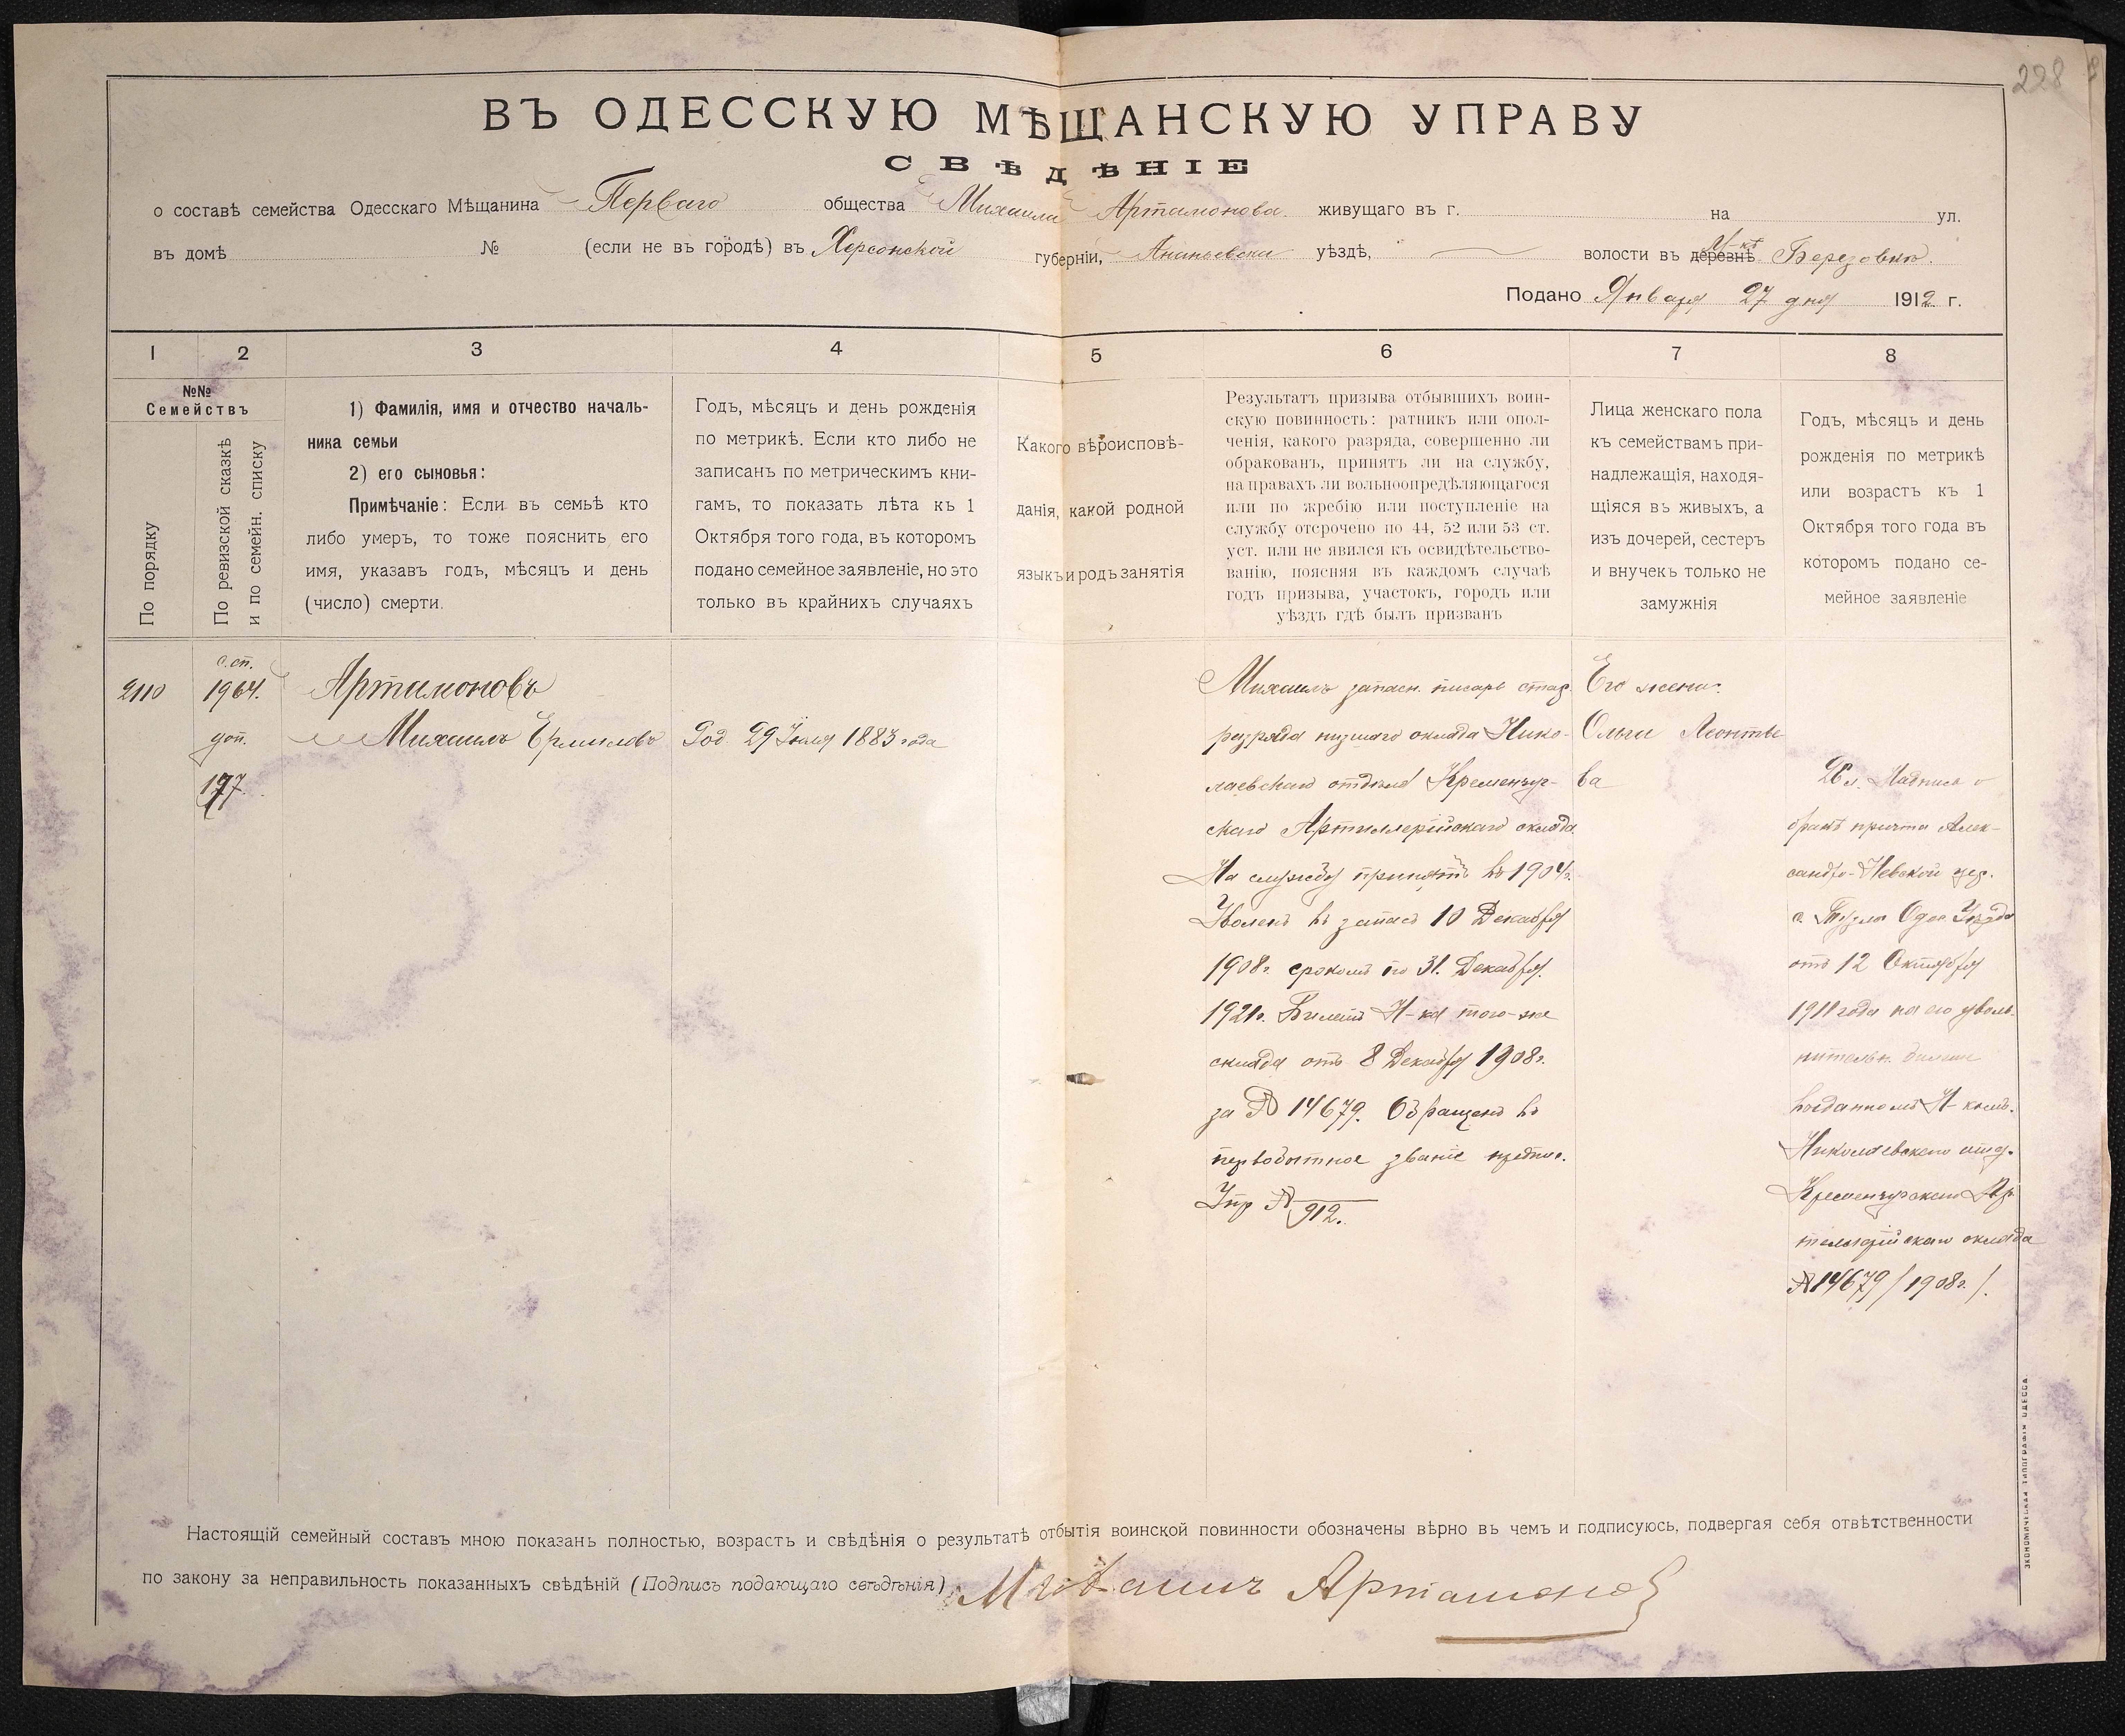 228
ВЪ ОДЕССКУЮ МѢЩАНСКУЮ УПРАВУ
СВѢДѢНІЕ
о составѣ семейства Одесскаго Мѣщанина Перваго общества Михаила Артамонова живущаго въ г. на ул.
въ домѣ № (если не въ городѣ) въ Херсонской губерніи, Ананьевском уѣздѣ, волости въ деревнѣ м-кѣ Березовкѣ.
Подано Января 27 дня 1912 г.
1 2 3 4 5 6 7 8
№№
Семействъ
По порядку
По ревизской сказкѣ
и по семейн. списку
1) Фамилія, имя и отчество началь-
ника семьи
2) его сыновья:
Примѣчаніе: Если въ семьѣ кто
либо умеръ, то тоже пояснить его
имя, указавъ годъ, мѣсяцъ и день
(число) смерти.
Годъ, мѣсяцъ и день рожденія
по метрикѣ. Если кто либо не
записанъ по метрическимъ кни-
гамъ, то показать лѣта къ 1
Октября того года, въ которомъ
подано семейное заявленіе, но это
только въ крайнихъ случаяхъ
Какого вѣроисповѣ-
данія, какой родной
языкъ и родъ занятія
Результатъ призыва отбывшихъ воин-
скую повинность: ратникъ или опол-
ченія, какого разряда, совершенно ли
обракованъ, принятъ ли на службу,
на правахъ ли вольноопредѣляющагося
или по жребію или поступленіе на
службу отсрочено по 44, 52 или 53 ст.
уст. или не явился къ освидѣтельство-
ванію, поясняя въ каждомъ случаѣ
годъ призыва, участокъ, городъ или
уѣздъ гдѣ былъ призванъ
Лица женскаго пола
къ семействамъ при-
надлежащія, находя-
щіяся въ живыхъ, а
изъ дочерей, сестеръ
и внучекъ только не
замужнія
Годъ, мѣсяцъ и день
рожденія по метрикѣ
или возрастъ къ 1
Октября того года въ
которомъ подано се-
мейное заявленіе
2110
с. сп.
1964.
доп.
177.
Артамоновъ
Михаилъ Ермиловъ
Род. 29 Іюля 1883 года
Михаилъ запасн. писарь стар.
разряда низшаго оклада Нико-
лаевскаго отдѣла Кременчуг-
скаго Артиллерійскаго склада
На службу принятъ въ 1904 г.
Уволенъ въ запасъ 10 Декабря
1908 г. срокомъ по 31 Декабря
1921 г. Билетъ Н-ка того-же
склада отъ 8 Декабря 1908 г.
за № 14679. Обращенъ въ
первобытное званіе предпис.
Упр № 912.
Его жена:
Ольга Леонтье
ва
26 л. Надпись о
бракѣ причта Алек-
сандро-Невской цер.
с. Тузлы Одес Уѣзда
отъ 12 Октября
1911 года на его уволь-
нительн. билетѣ
выданномъ Н-комъ.
Николаевскаго отд.
Кременчугскаго Ар
тиллерійскаго склада
№ 14679 / 1908 г. /.
Настоящій семейный составъ мною показанъ полностью, возрастъ и свѣдѣнія о результатѣ отбытія воинской повинности обозначены вѣрно въ чемъ и подписуюсь, подвергая себя отвѣтственности
по закону за неправильность показанныхъ свѣдѣній (Подпись подающаго свѣдѣнія) Михаилъ Артамонов
ЭКОНОМИЧЕСКАЯ ТИПОГРАФІЯ ОДЕССА